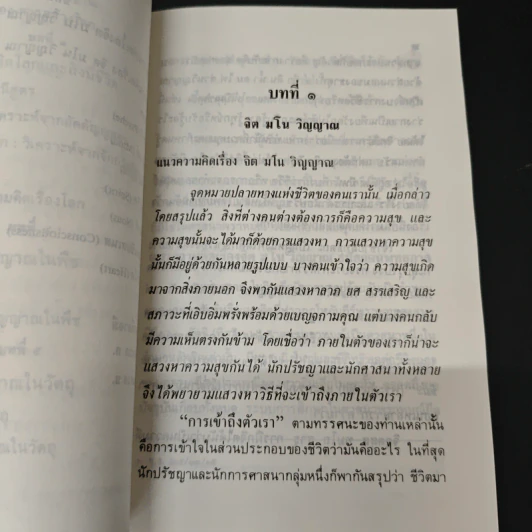 บทที่ ๑
จิต มโน วิญญาณ
แนวความคิดเรื่อง จิต มโน วิญญาณ
จุดหมายปลายทางแห่งชีวิตของคนเรานั้น เมื่อกล่าว
โดยสรุปแล้ว สิ่งที่ต่างคนต่างต้องการก็คือความสุข และ
ความสุขนั้นจะได้มาก็ด้วยการแสวงหา การแสวงหาความสุข
นั้นก็มีอยู่ด้วยกันหลายรูปแบบ บางคนเข้าใจว่า ความสุขเกิด
มาจากสิ่งภายนอก จึงพากันแสวงหาลาภ ยศ สรรเสริญ และ
สภาวะที่เอิบอิ่มพรั่งพร้อมด้วยเบญจกามคุณ แต่บางคนกลับ
มีความเห็นตรงกันข้าม โดยเชื่อว่า ภายในตัวของเราก็น่าจะ
แสวงหาความสุขกันได้ นักปรัชญาและนักศาสนาทั้งหลาย
จึงได้พยายามแสวงหาวิธีที่จะเข้าถึงภายในตัวเรา
"การเข้าถึงตัวเรา" ตามทรรศนะของท่านเหล่านั้น
คือการเข้าใจในส่วนประกอบของชีวิตว่ามันคืออะไร ในที่สุด
นักปรัชญาและนักการศาสนากลุ่มหนึ่งก็พากันสรุปว่า ชีวิตมา